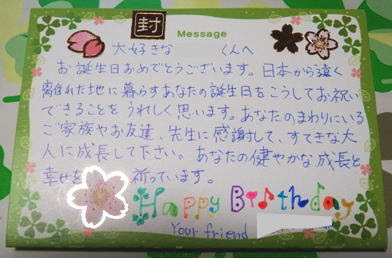 封
Message
大好きな くんへ
お誕生日おめでとうございます。日本から遠く
離れた地に暮らすあなたの誕生日をこうしてお祝い
できることをうれしく思います。あなたのまわりにいる
ご家族やお友達、先生に感謝して、すてきな大
人に成長して下さい。あなたの健やかな成長と
幸せを 祈っています。
Happy Birthday
Your friend